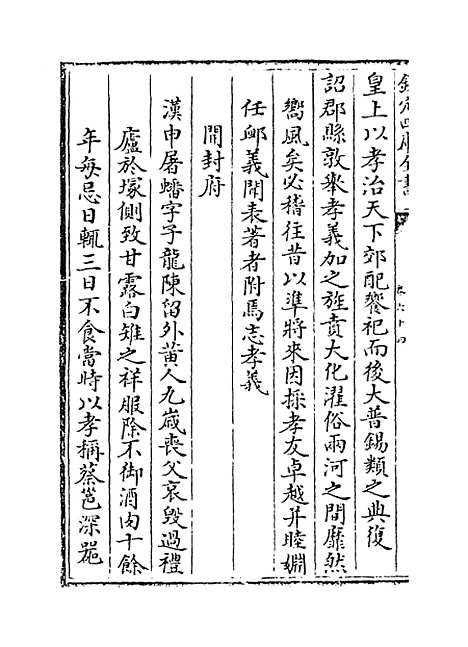 欽定四庫全書
卷六十四
皇上以孝治天下郊配饗祀而後大普錫類之典復
詔郡縣敦舉孝義加之旌賁大化濯俗兩河之間靡然
嚮風矣必稽往昔以準將來因採孝友卓越并睦婣
任卹義聞表著者附焉志孝義
開封府
漢申屠蟠字子龍陳留外黃人九歲喪父哀毀過禮
廬於塚側致甘露白雉之祥服除不御酒肉十餘
年每忌日輒三日不食當時以孝稱蔡邕深器